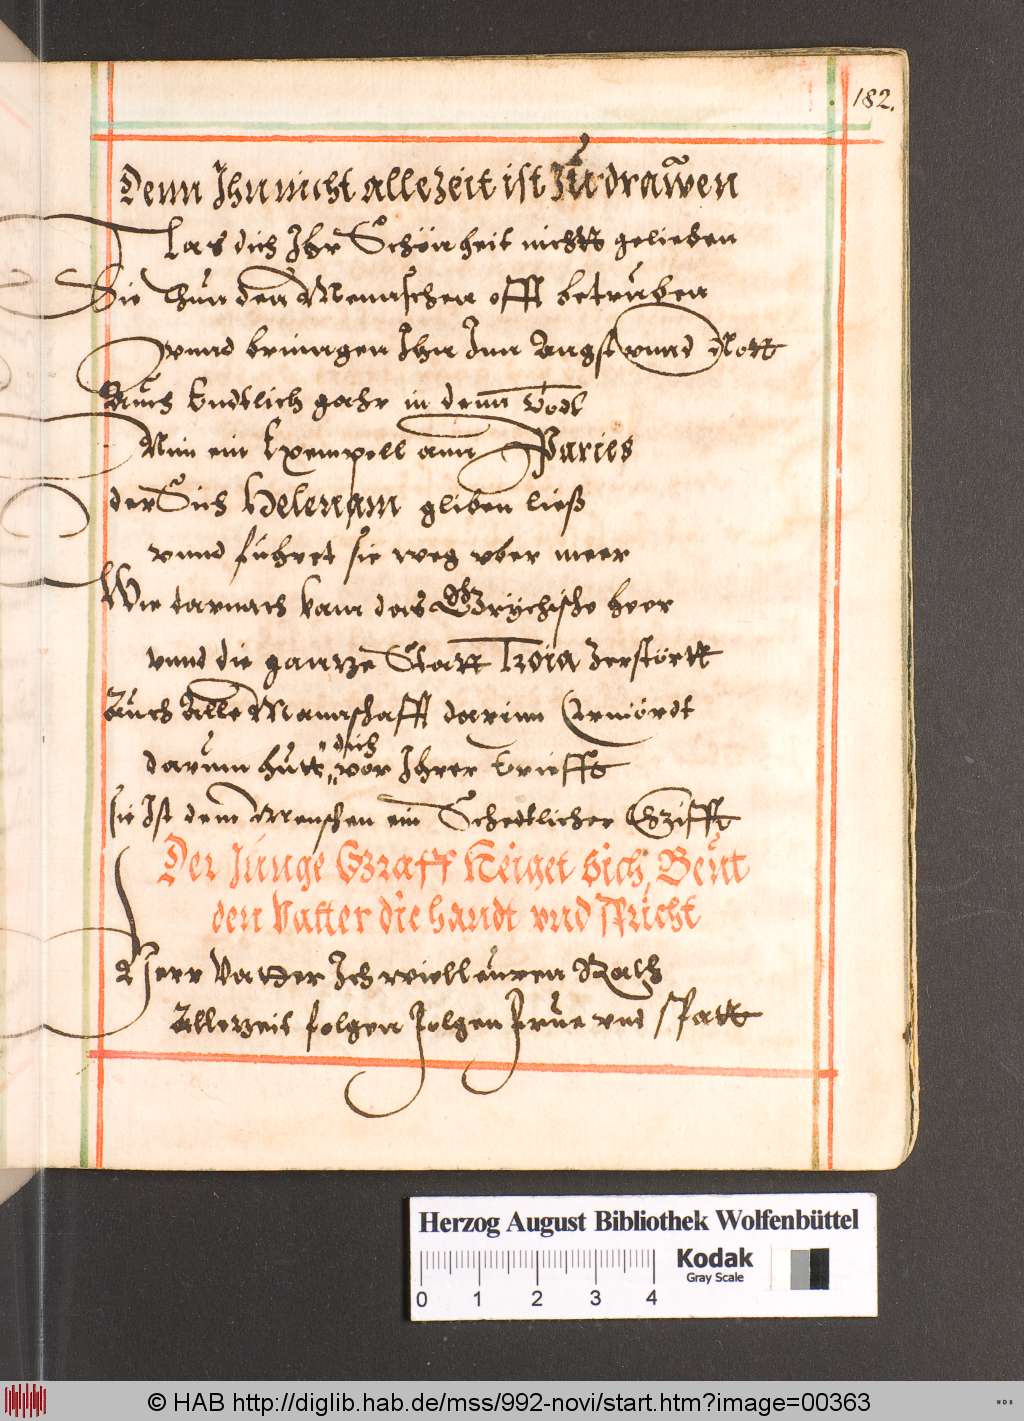 182.
Denn Ihn nicht allezeit ist Zu drawen
Las dich Ihr Schönheit nichtt gelieben
Sie thun den Mennschen offt betruben
vnnd bringen Ihn Inn Angst vnnd Nott
Auch Endtlich gahr in denn Todt
Nim ein Exempell ann Paries
der Sich Helenam glieben ließ
vnnd fuhret sie weg vber meer
Wie darnach kam das Grychische heer
vnnd die gantze Statt Troia Zerstörtt
Auch Alle Mannschafft darinn Ermördt
darumb hutt dich vor Ihrer Triefft
sie Ist dem Menschen ein Schedtlicher Gifft
Der Junge Graff Neiget sich, Beut
den Vatter die handt vnd spricht
Herr Vatter Ich will euren Rath
Allezeit folgen Frue vnd spatt
Herzog August Bibliothek Wolfenbüttel
Kodak
Gray Scale
0 1 2 3 4
© HAB http://diglib.hab.de/mss/992-novi/start.htm?image=00363